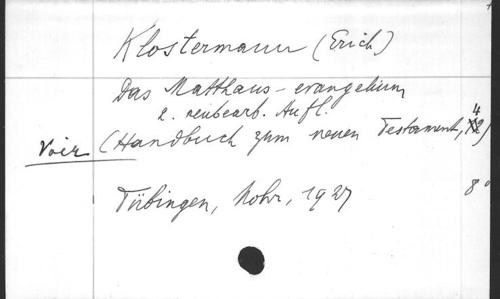 Klostermann (Erich)
Das Matthaus-evangelium
2. neubearb. Aufl.
Voir (Handbuch zum neuen Testament, 4)
Tübingen, Mohr, 1927 8°